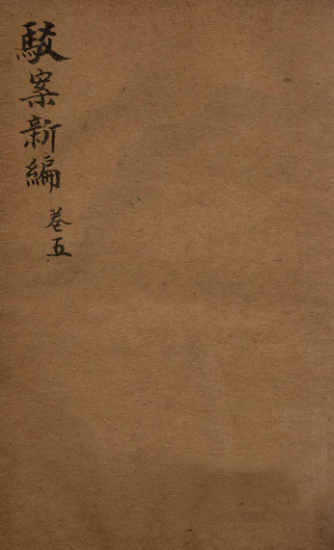 駁案新編 卷五